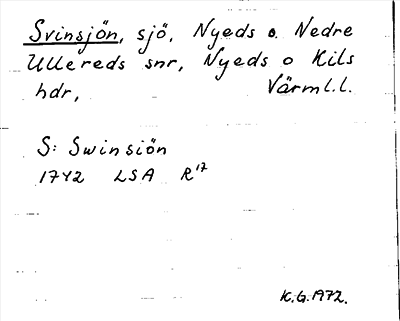 Svinsjön, sjö, Nyeds o. Nedre
Ullereds snr, Nyeds o Kils
hdr, Värml.l.
S: Swinsiön
1742 LSA R17
K.G. 1972.